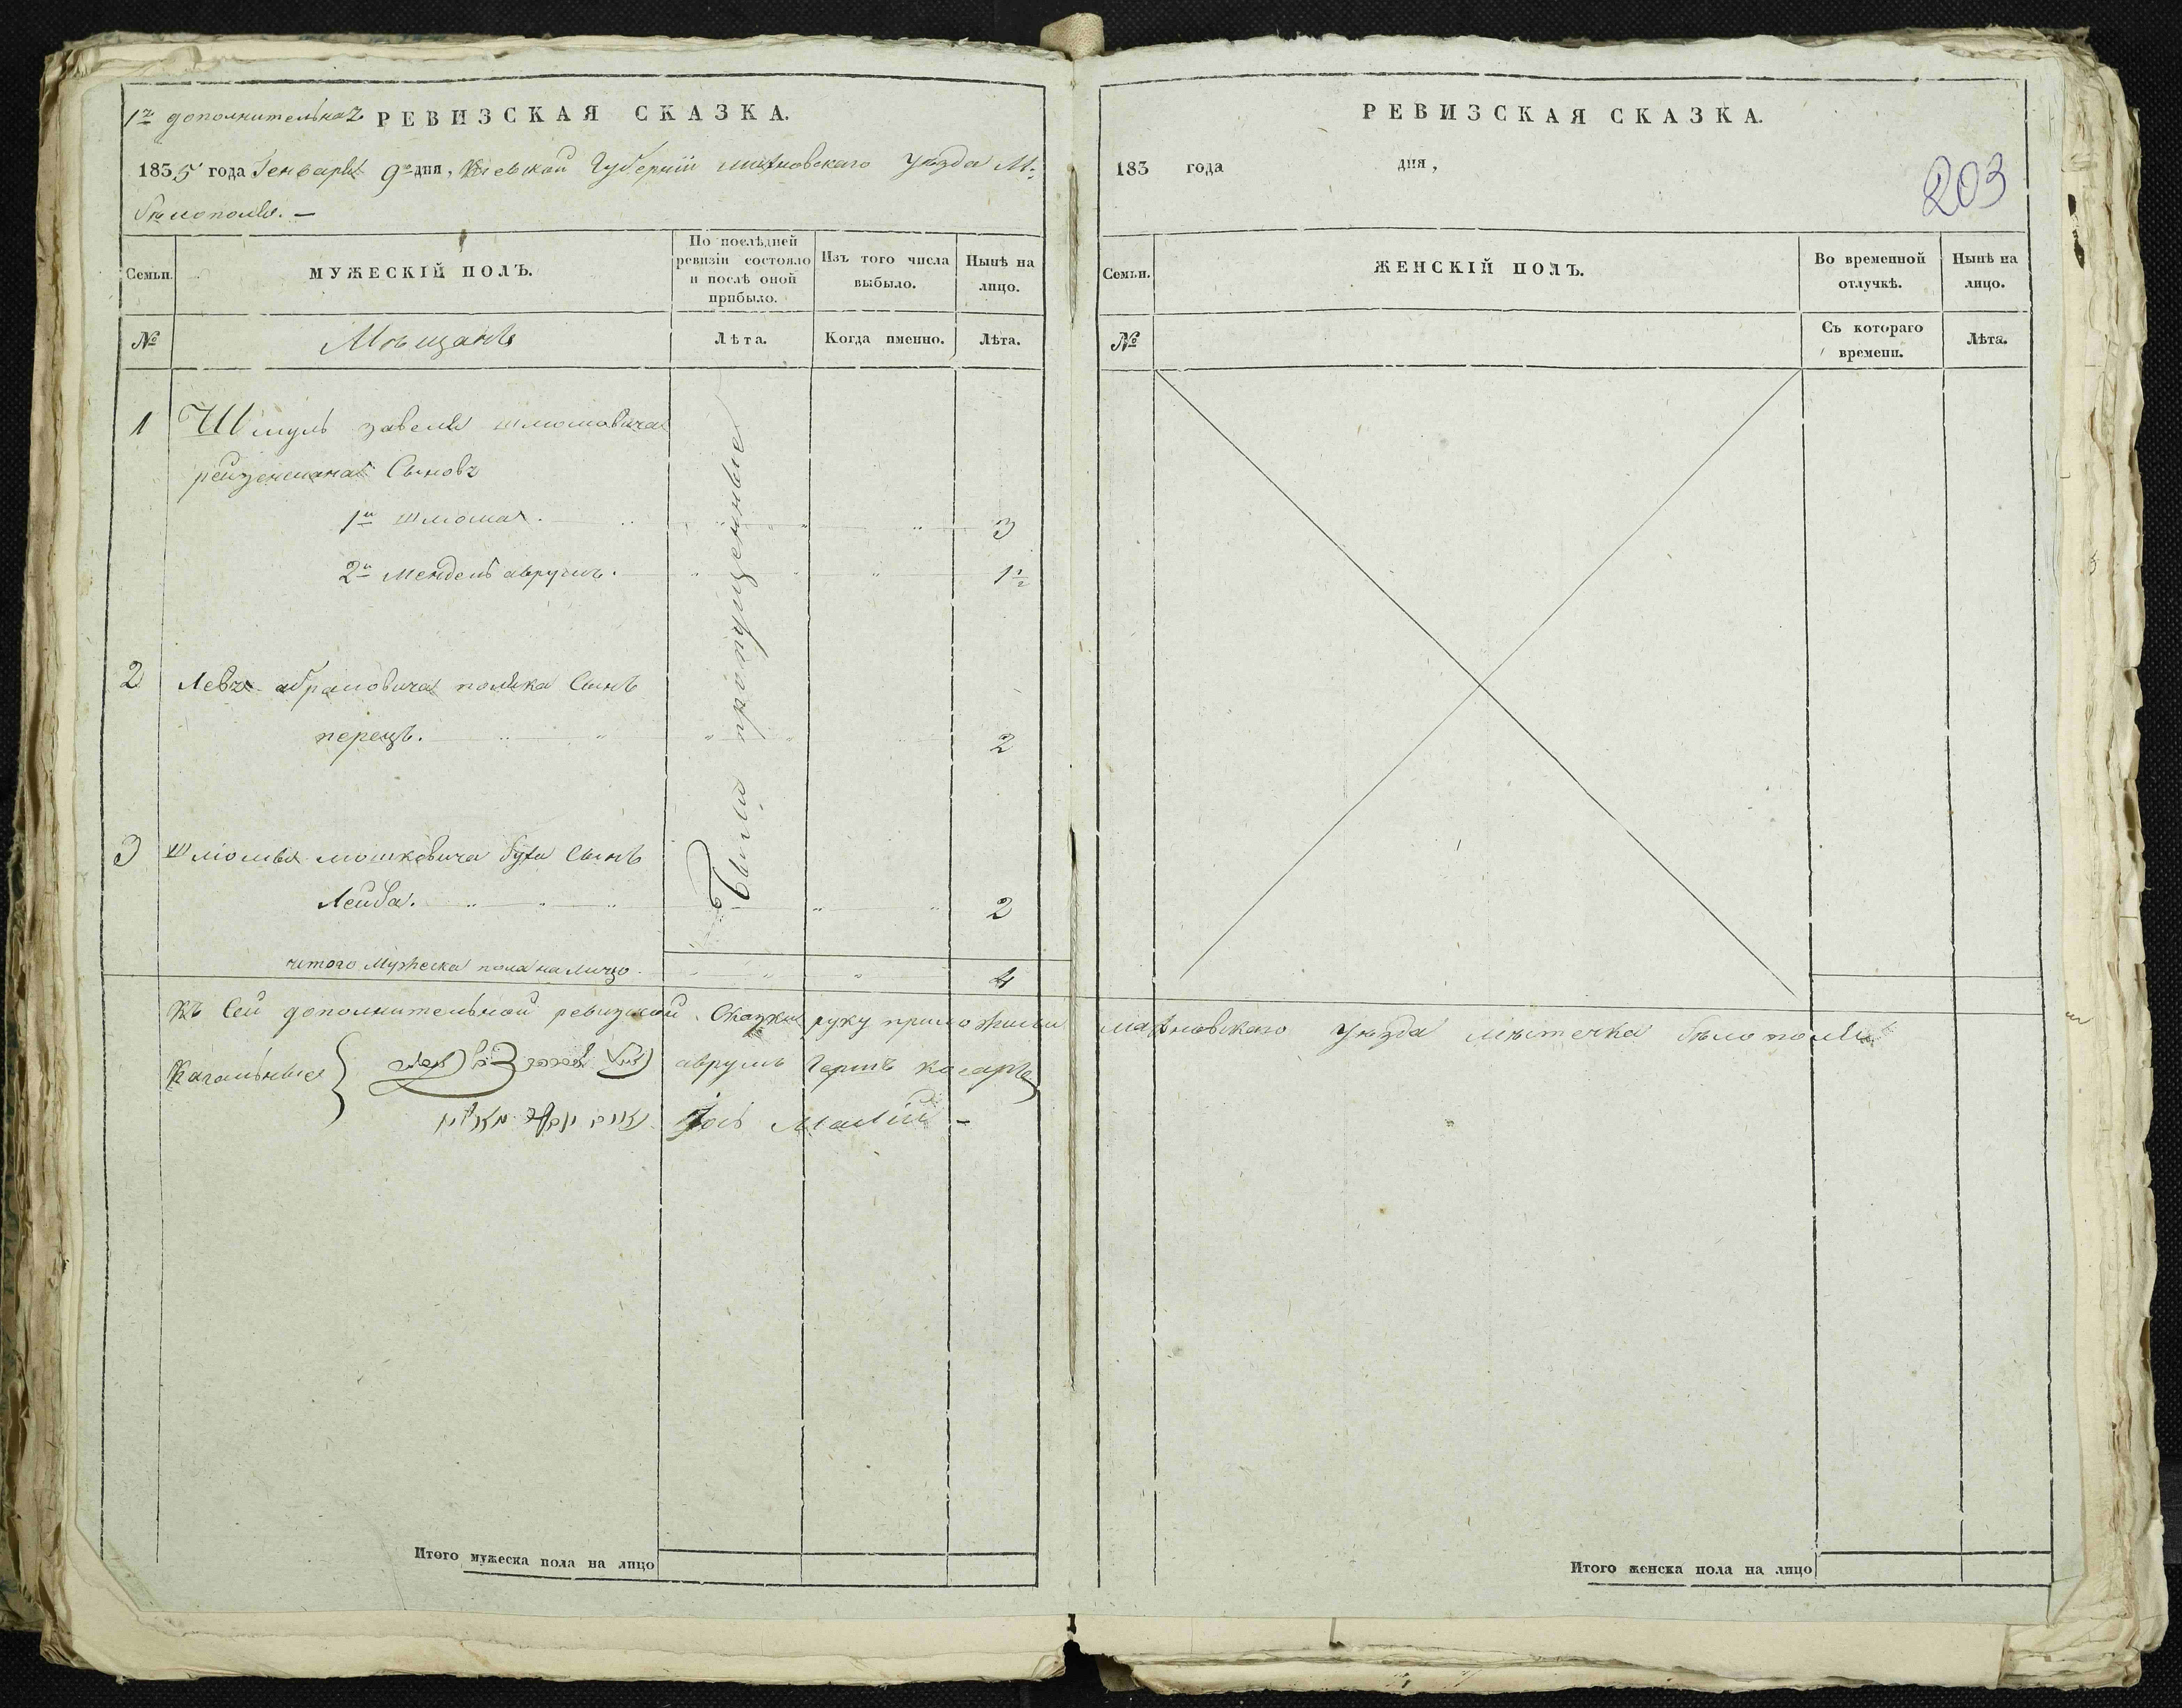 1я дополнительная РЕВИЗСКАЯ СКАЗКА.
1835 года Генваря 9го дня, Киевской Губернии махновскаго уезда М:
белополья. —
Семьи.
МУЖЕСКІЙ ПОЛЪ.
По послѣдней ревизіи состояло и послѣ оной прибыло.
Изъ того числа выбыло.
Нынѣ на лицо.
№
Мещанъ
Лѣта.
Когда именно.
Лѣта.
1 Шмуль завеля шлiомовича
рейзенмана Сыновъ
1й шлiома. 3
2й Мендель аврумъ. 1 1/2
2 Левъ абрамовича поляка Сынъ
перецъ. 2
3 шлiомы мошковича буха Сынъ
Лейба. 2
Были пропущенные
итого Мужеска пола на лицо 4
Къ Сей дополнительной ревизской Сказки руку приложили махновскаго уезда местечка белополья
Кагальные аврумъ Гершъ косаръ
Iось Малiй -
РЕВИЗСКАЯ СКАЗКА.
183 года дня,
203
Семьи.
ЖЕНСКІЙ ПОЛЪ.
Во временной отлучкѣ.
Нынѣ на лицо.
№
Съ котораго времени.
Лѣта.
Итого мужеска пола на лицо
Итого женска пола на лицо